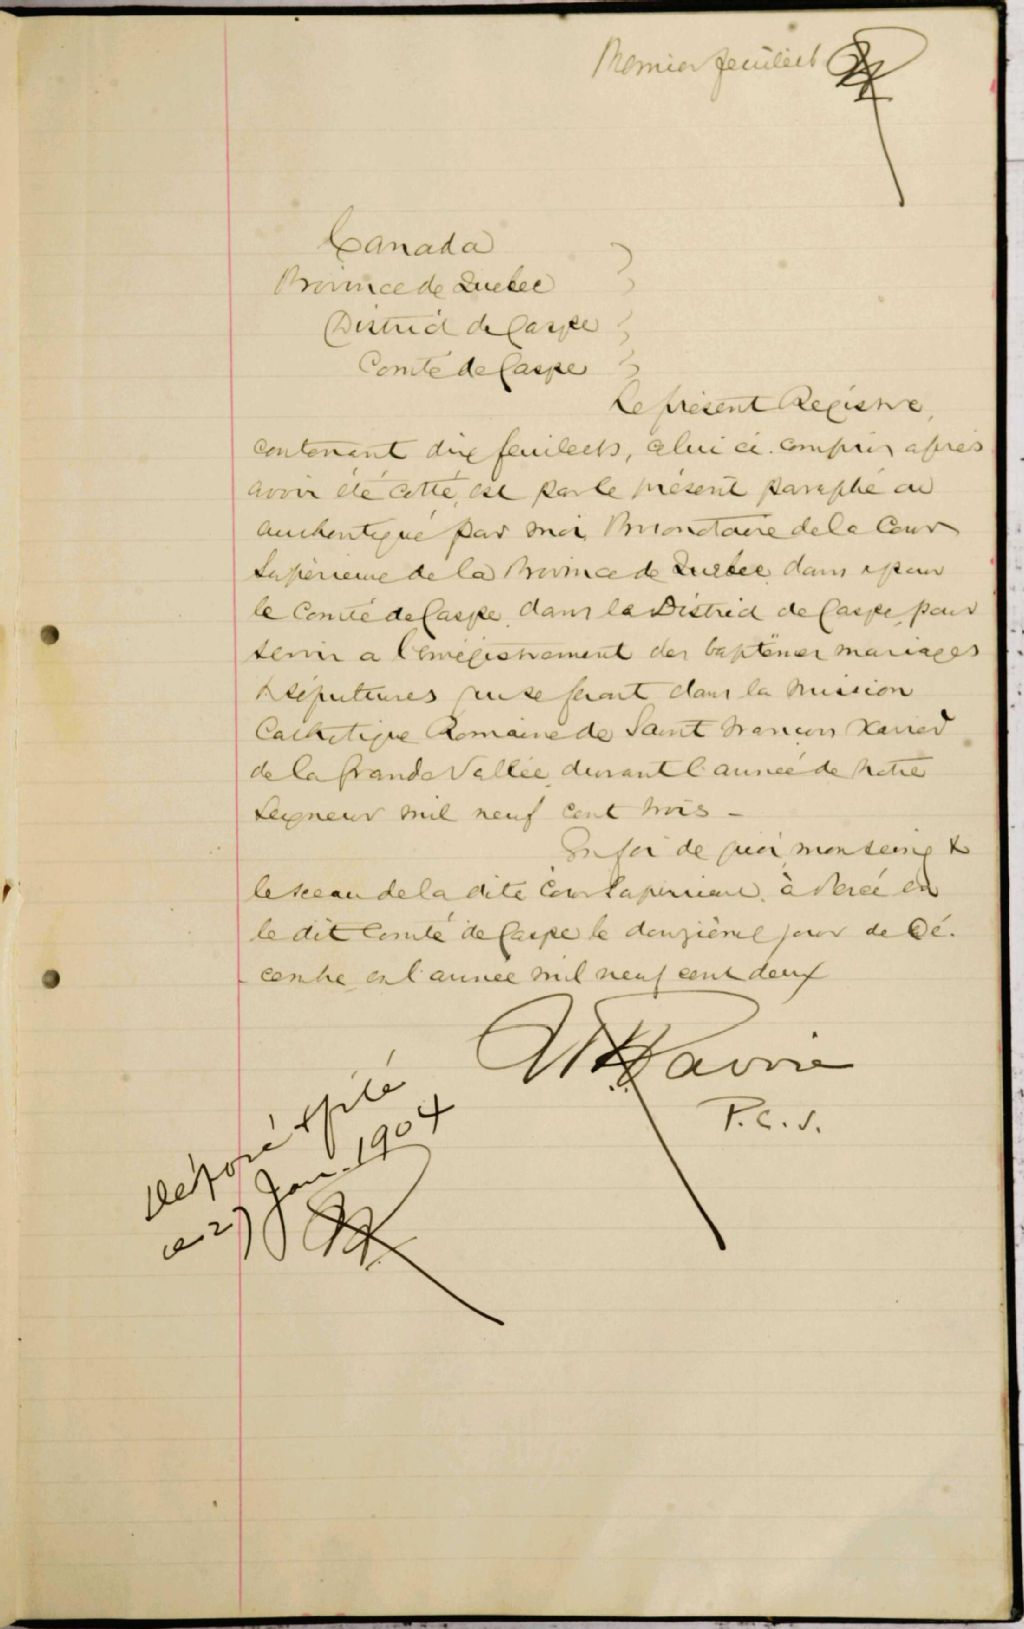 Premier feuillet
Canada
Province de Quebec
District de Gaspe
Comté de Gaspe
Le présent Registre,
contenant dix feuillets, celui ci compris après
avoir été cotté, est par le présent paraphé et
authentiqué par moi, Protonotaire de la Cour
Supérieure de la Province de Quebec dans & pour
le Comté de Gaspe, dans le District de Gaspe, pour
servir a l'enrégistrement des baptêmes mariages
& sépultures qui se feront dans la Mission
Catholique Romaine de Saint François Xavier
de la Grande Vallée, durant l'année de Notre
Seigneur mil neuf cent trois -
En foi de quoi, mon seing &
le sceau de la dite Cour Supérieure, à Percé en
le dit Comté de Gaspe le douzième jour de Dé.
cembre en l'année mil neuf cent deux
Lavoie
P.C.S.
Déposé & filé
ce 27 Jan. 1904